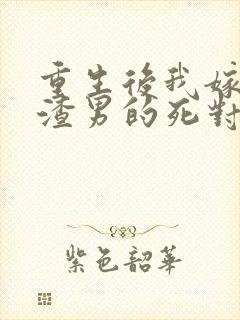 重生後我嫁
渣男的死對
紫色韶華